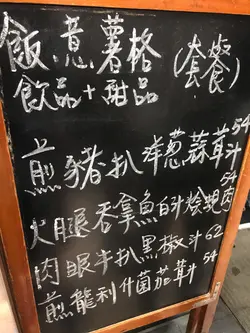 飯.意.薯格 (套餐)
飲品+甜品
煎豬扒洋葱蒜茸汁 54
火腿吞拿魚白汁燴蜆肉 54
肉眼牛扒黑椒汁 62
煎龍利什菌茄茸汁 54